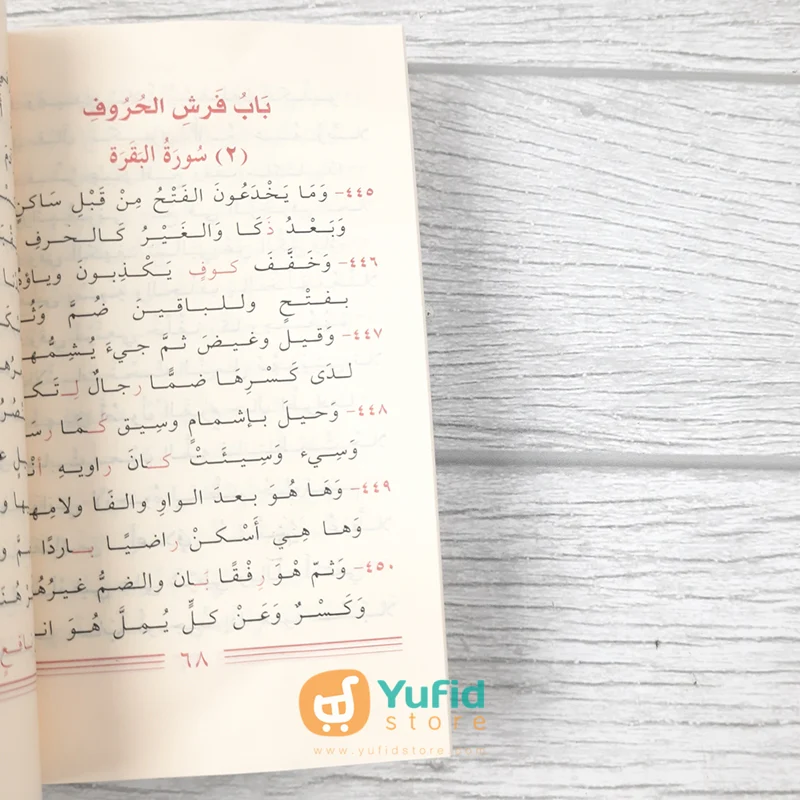 بَابُ فَرْشِ الحُرُوفِ
(٢) سُورَةُ البَقَرَة
٤٤٥- وَمَا يَخْدَعُونَ الفَتْحُ مِنْ قَبْلِ سَاكِنٍ
وَبَعْدُ ذَكَا وَالغَيْرُ كَالحرفِ
٤٤٦- وَخَفَّفَ كوفٍ يَكْذِبونَ وياؤهُ
بفتْحٍ وللباقينَ ضُمَّ
٤٤٧- وَقيلَ وغيضَ ثمَّ جيءَ يُشِمُّها
لدَى كَسْرِهَا ضمًّا رجالٌ
٤٤٨- وَحيلَ بإشمامٍ وسِيق كَما
وَسِيء وَسِيئَتْ كانَ راويهِ
٤٤٩- وَهَا هُوَ بعدَ الواوِ والفَا ولامِها
وَها هِي أَسْكنْ راضيًا باردًا
٤٥٠- وَثمّ هْوَ رِفْقًا بَان والضمُّ غيرُهُمْ
وَكَسْرٌ وَعَنْ كلٍّ يُمِلَّ هُوَ
٦٨
Yufid
store
www.yufidstore.com